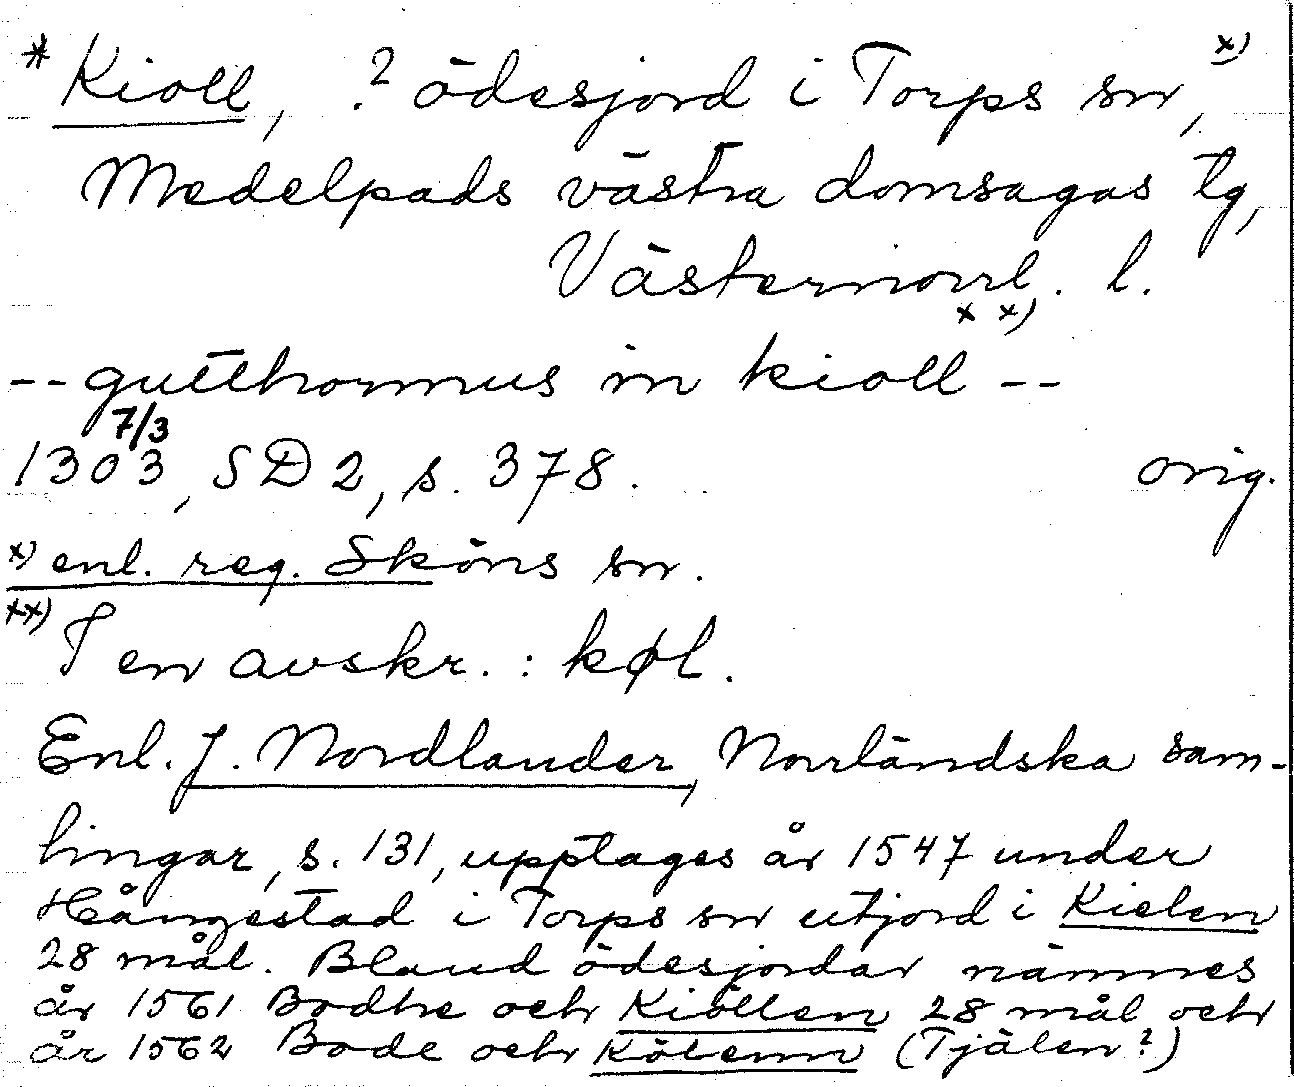 * Kioll, ? ödesjord i Torps sn, x)
Medelpads västra domsagas tg,
Västernorrl. l.
-- gutthormus in kioll xx) --
1303 7/3, SD 2, s. 378. orig.
x) enl. reg. Sköns sn.
xx) I en avskr. : køl.
Enl. J. Nordlander, Norrländska sam-
lingar, s. 131, upptages år 1547 under
Hångestad i Torps sn utjord i Kielen
28 mål. Bland ödesjordar nämnes
år 1561 Bodhe och Kiöllen 28 mål och
år 1562 Bode och Kölenn (Tjälen?)